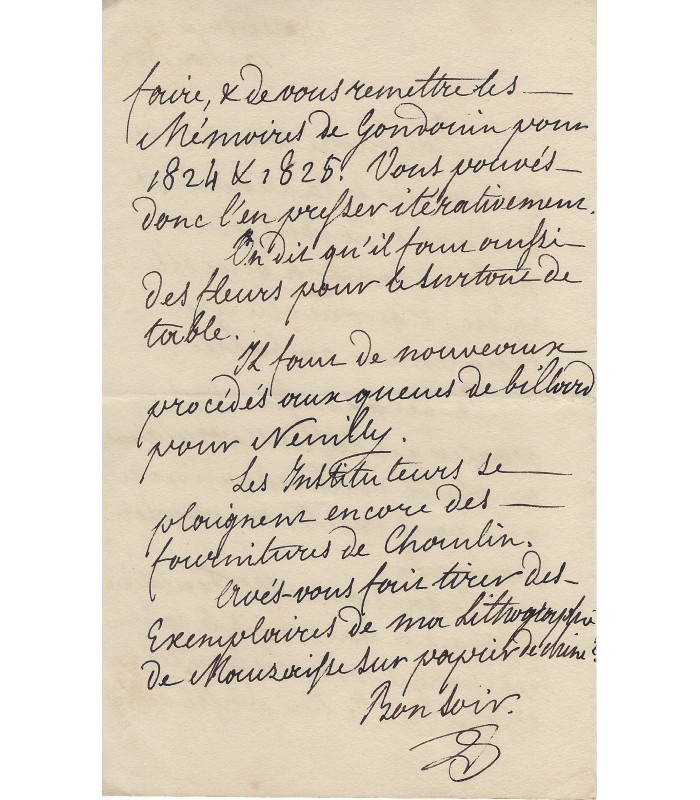 faire, & de vous remettre les —
Mémoires de Gondouin pour
1824 & 1825. Vous pouvés —
donc l'en presser itérativement.
On dit qu'il faut aussi —
des fleurs pour le surtout de
table.
Il faut de nouveaux
procédés aux queues de billard
pour Neuilly.
Les Instituteurs se —
plaignent encore des —
fournitures de Chaulin.
Avés-vous fait tirer des —
Exemplaires de ma Lithographie
de Mauzaisse sur papier de chine?
Bon soir.